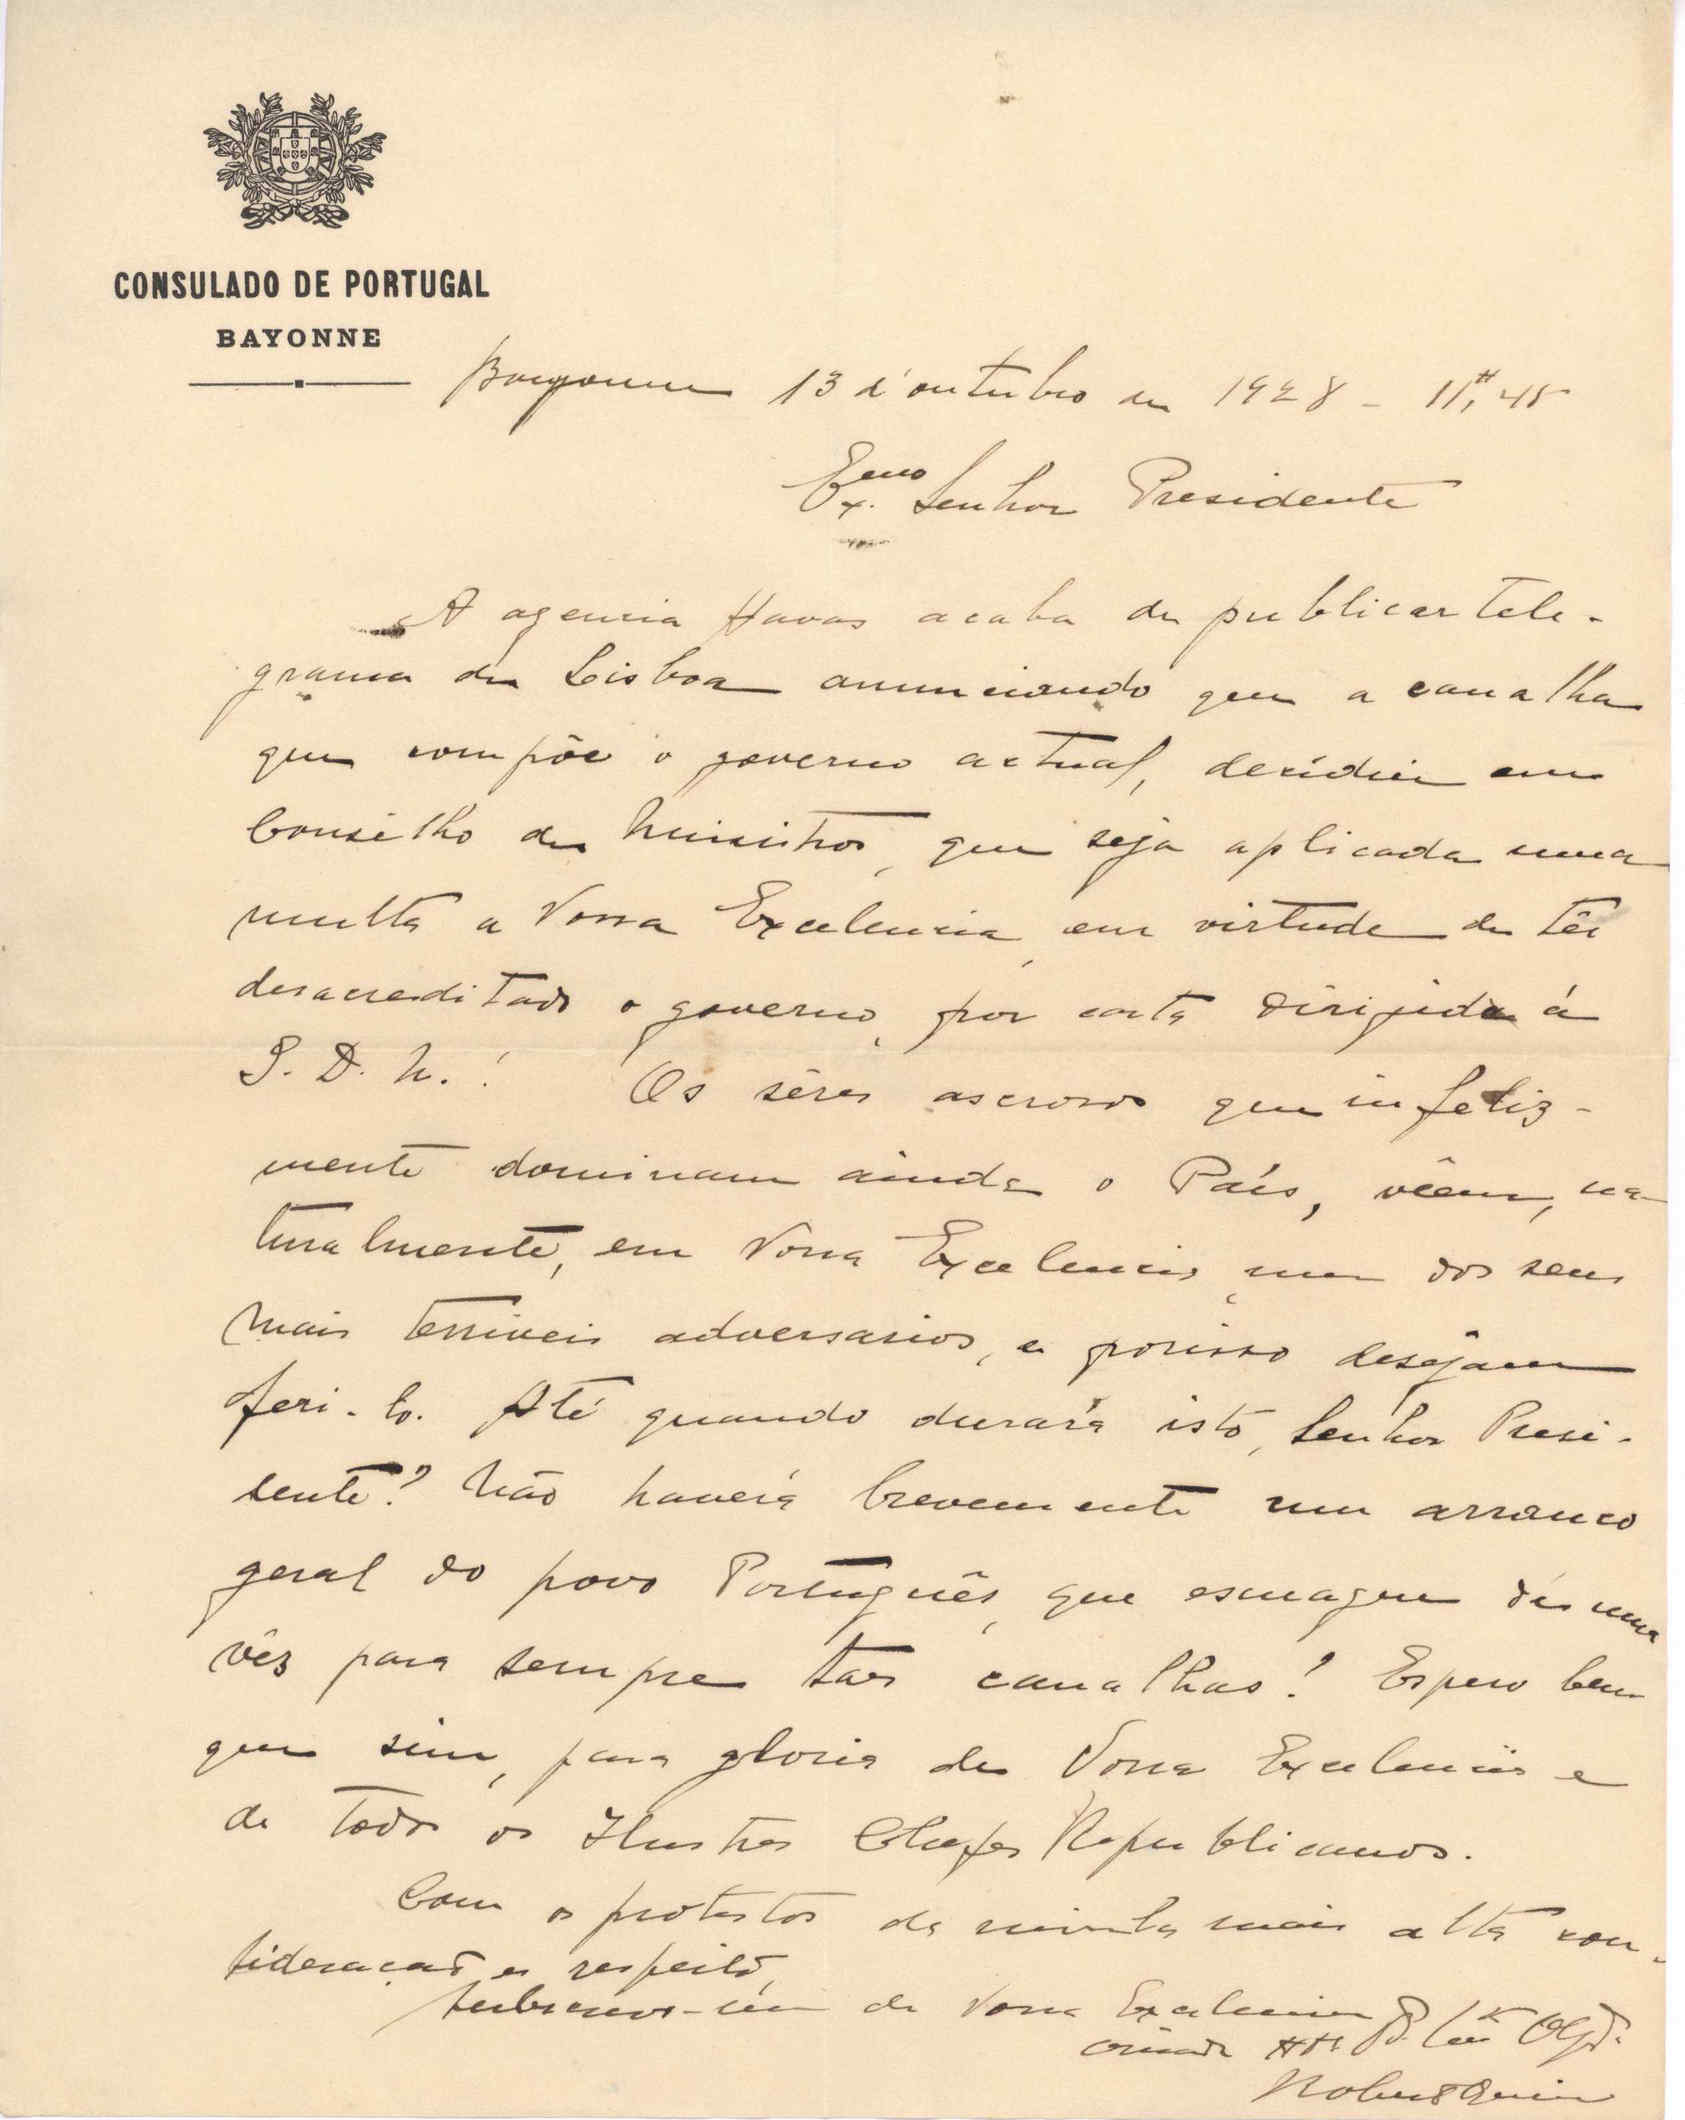 CONSULADO DE PORTUGAL
BAYONNE
Bayonne 13 d'outubro de 1928 - 11H,45
Exmo Senhor Presidente
A agencia Havas acaba de publicar tele-
grama de Lisboa anunciando que a canalha
que compõe o governo actual, decidiu em
Conselho de Ministros, que seja aplicada uma
multa a Vossa Excelencia, em virtude de têr
desacreditado o governo, por carta dirijida á
S. D. N. !  Os sêres ascrosos que infeliz-
mente dominam ainda o País, vêem, na
turalmente, em Vossa Excelencia, um dos seus
mais terriveis adversarios, e porisso desejam
feri-lo. Até quando durará isto, Senhor Presi-
dente? Não haverá brevemente um arranco
geral do povo Português, que esmague de uma
vês para sempre tais canalhas? Espero bem
que sim, para gloria de Vossa Excelencia e
de todos os Ilustres Chefes Republicanos.
Com os protestos da minha mais alta con-
sideração e respeito,
subscrevo-me de Vossa Excelencia
criado